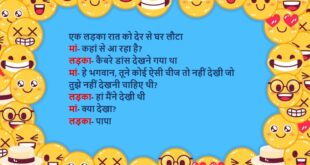 एक लड़का रात को देर से घर लौटा
मां- कहां से आ रहा है?
लड़का- कैबरे डांस देखने गया था
मां- हे भगवान, तूने कोई ऐसी चीज तो नहीं देखी जो
तुझे नहीं देखनी चाहिए थी?
लड़का- हां मैंने देखी थी
मां- क्या देखा?
लड़का- पापा